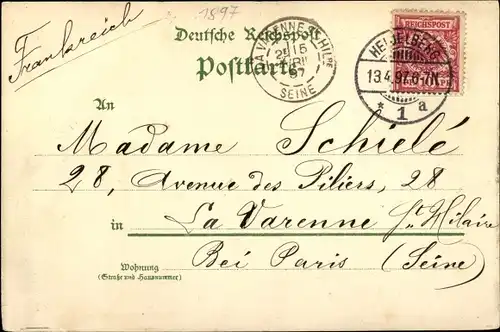 1897
Frankreich
Deutsche Reichspost
Postkarte
LA VARENNE ST HILRE
15
97
SEINE
REICHSPOST
HEIDELBERG
13.4.97.6-7N.
* 1 a
An
Madame Schielé
28, Avenue des Piliers, 28
in La Varenne St. Hilaire
Bei Paris (Seine)
Wohnung
(Straße und Hausnummer)